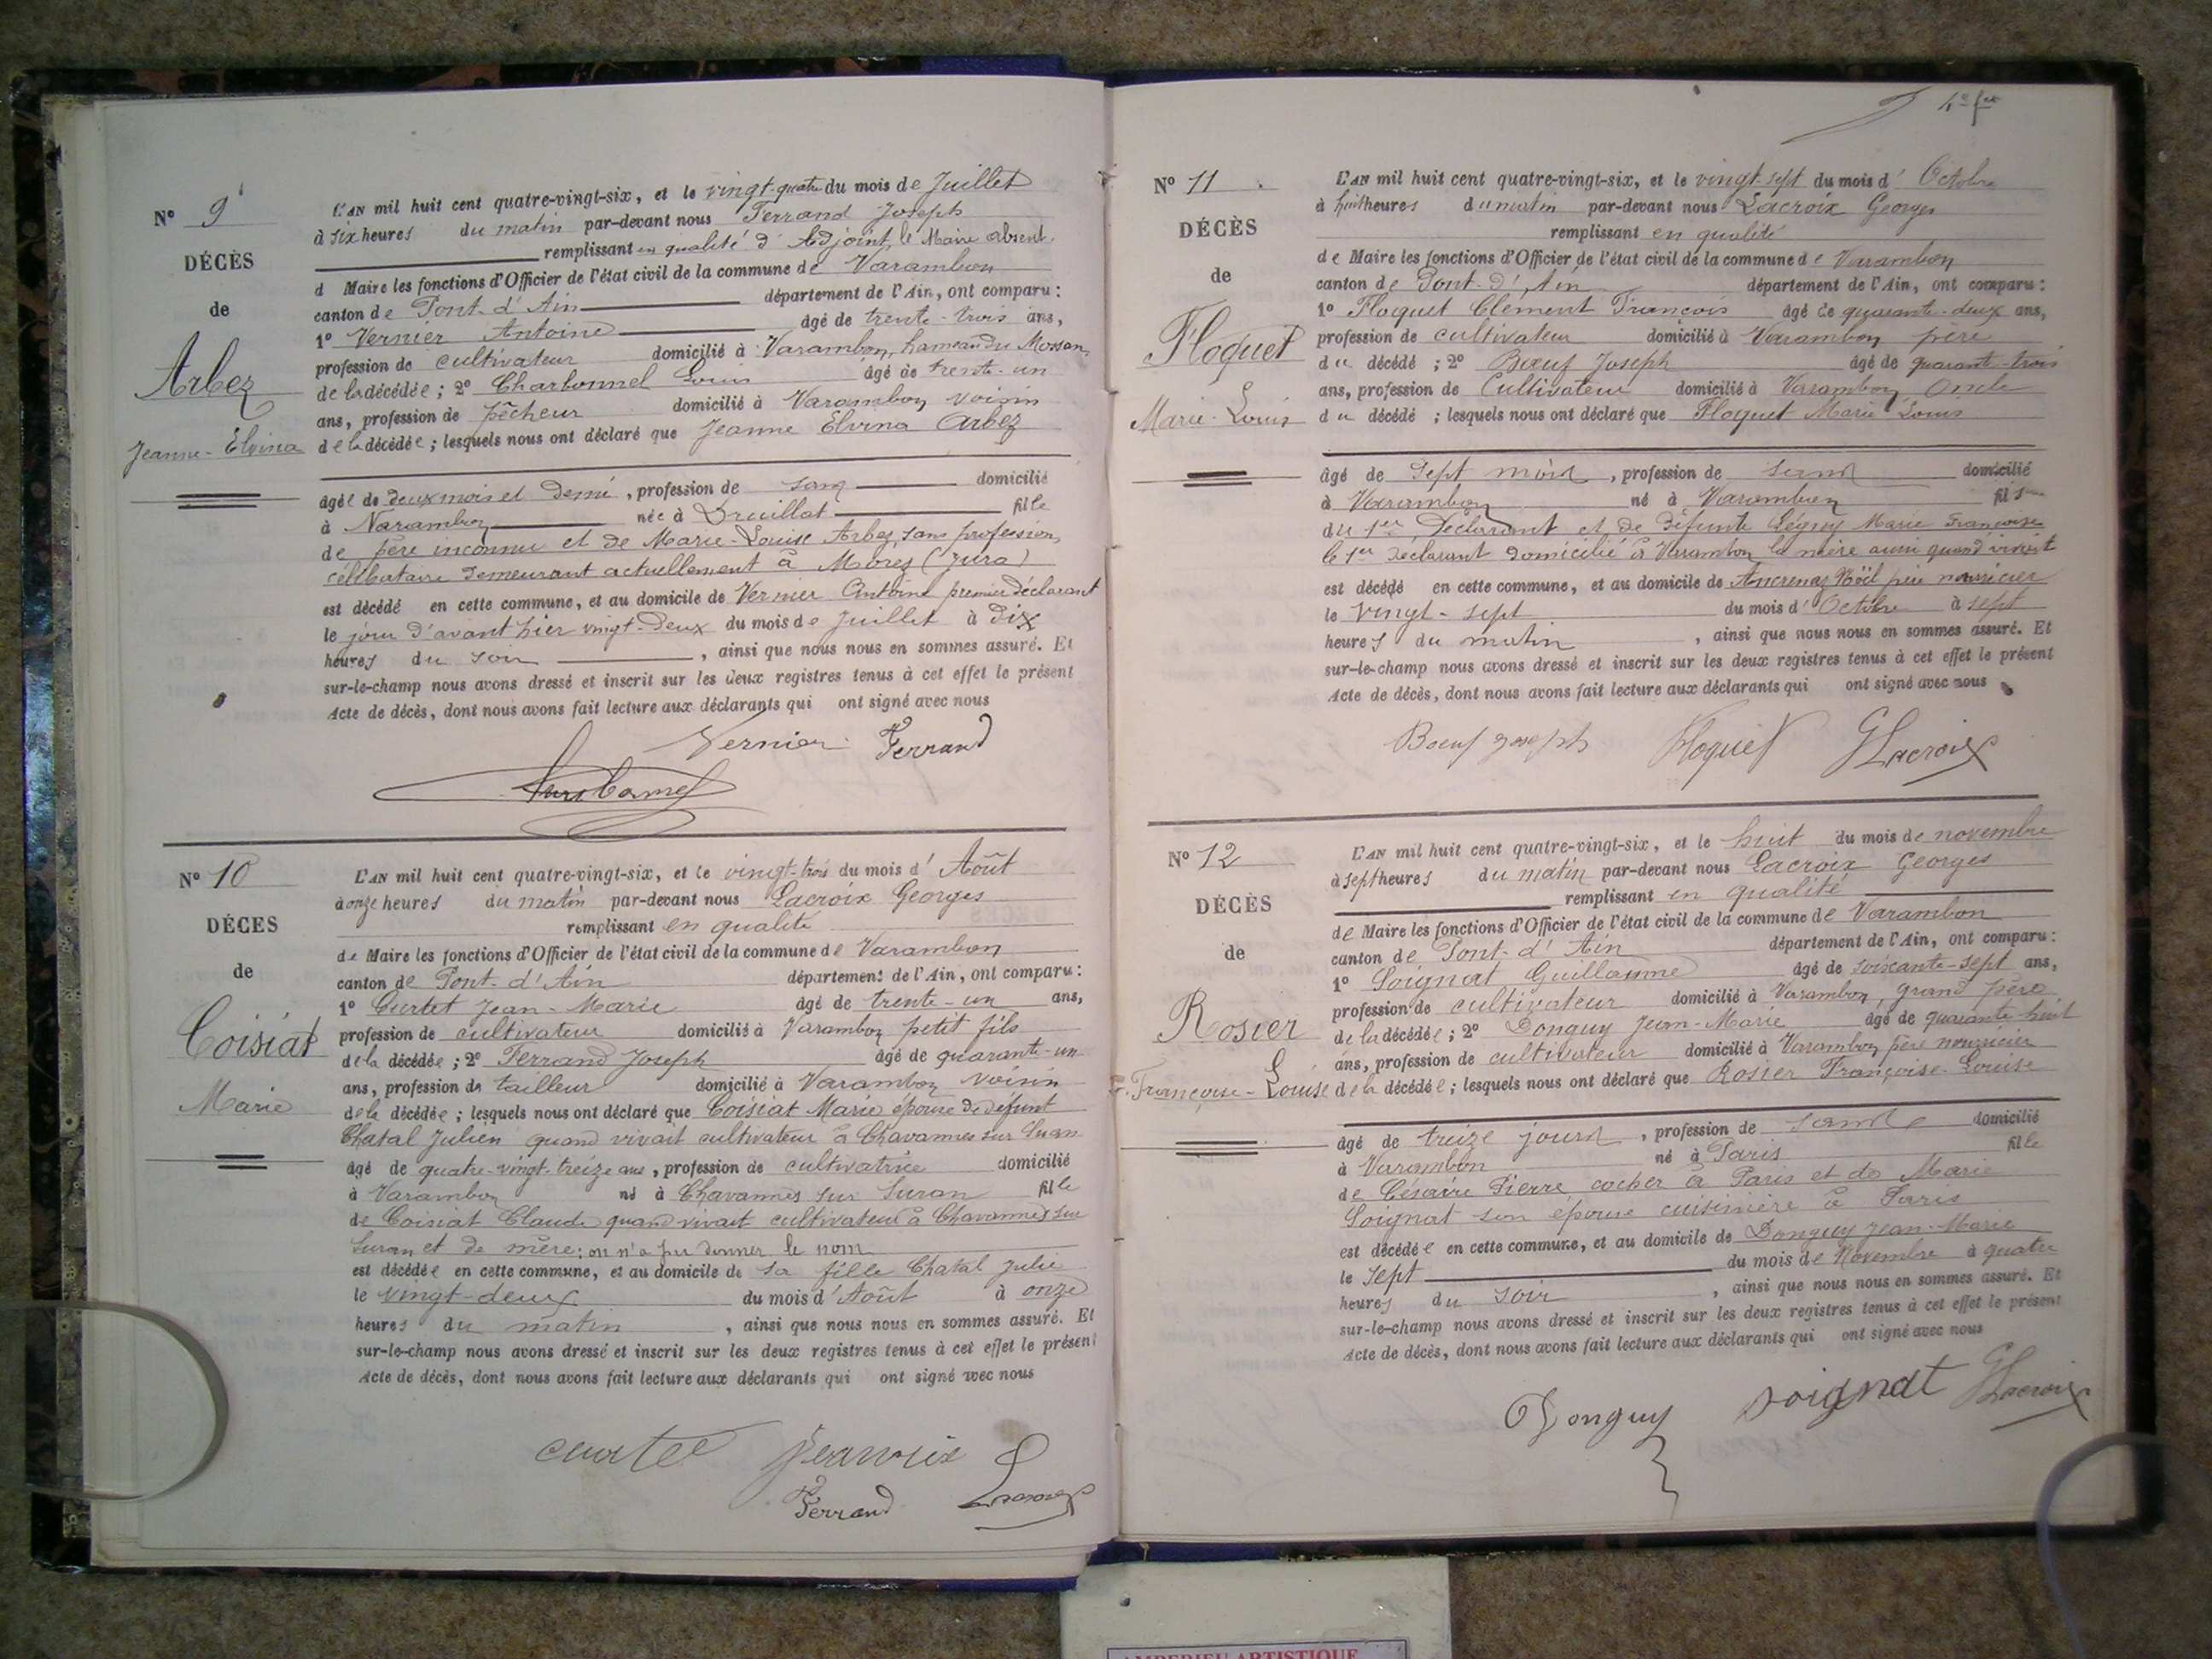 N° 9
DÉCÈS
de
Arbez
Jeanne-Elvina
L'AN mil huit cent quatre-vingt-six, et le vingt-quatre du mois de Juillet
à six heures du matin par-devant nous Ferrand Joseph
remplissant en qualité d'Adjoint, le Maire absent.
d Maire les fonctions d'Officier de l'état civil de la commune de Varambon
canton de Pont-d'Ain département de l'Ain, ont comparu :
1° Vernier Antoine âgé de trente-trois ans,
profession de cultivateur domicilié à Varambon, hameau du
de la décédée ; 2° Charbonnel Louis âgé de trente-un
ans, profession de pêcheur domicilié à Varambon voisin
de la décédée ; lesquels nous ont déclaré que Jeanne Elvina Arbez
âgée de deux mois et demi, profession de sans domicilié
à Varambon née à Druillat fille
de père inconnu et de Marie-Louise Arbez, sans profession,
célibataire demeurant actuellement à Morez (Jura)
est décédé en cette commune, et au domicile de Vernier Antoine premier déclarant
le jour d'avant hier vingt-deux du mois de Juillet à dix
heures du soir, ainsi que nous nous en sommes assuré. Et
sur-le-champ nous avons dressé et inscrit sur les deux registres tenus à cet effet le présent
Acte de décès, dont nous avons fait lecture aux déclarants qui ont signé avec nous
Vernier Ferrand
N° 10
DÉCES
de
Coisiat
Marie
L'AN mil huit cent quatre-vingt-six, et le vingt-trois du mois d'Août
à onze heures du matin par-devant nous Lacroix Georges
remplissant en qualité
de Maire les fonctions d'Officier de l'état civil de la commune de Varambon
canton de Pont-d'Ain département de l'Ain, ont comparu :
1° Curtet Jean-Marie âgé de trente-un ans,
profession de cultivateur domicilié à Varambon petit fils
de la décédée ; 2° Ferrand Joseph âgé de quarante-un
ans, profession de tailleur domicilié à Varambon voisin
de la décédée ; lesquels nous ont déclaré que Coisiat Marie épouse de défunt
Chatal Julien quand vivait cultivateur à Chavannes sur Suran
âgé de quatre-vingt-treize ans, profession de cultivatrice domicilié
à Varambon né à Chavannes sur Suran fille
de Coisiat Claude quand vivait cultivateur à Chavannes sur
Suran et de mère : on n'a pu donner le nom
est décédée en cette commune, et au domicile de sa fille Chatal Julie
le vingt-deux du mois d'Août à onze
heures du matin, ainsi que nous nous en sommes assuré. Et
sur-le-champ nous avons dressé et inscrit sur les deux registres tenus à cet effet le présent
Acte de décès, dont nous avons fait lecture aux déclarants qui ont signé avec nous
Ferrand
N° 11
DÉCÈS
de
Floquet
Marie-Louis
L'AN mil huit cent quatre-vingt-six, et le vingt-sept du mois d'Octobre
à huit heures du matin par-devant nous Lacroix Georges
remplissant en qualité
de Maire les fonctions d'Officier de l'état civil de la commune de Varambon
canton de Pont-d'Ain département de l'Ain, ont comparu :
1° Floquet Clément François âgé de quarante-deux ans,
profession de cultivateur domicilié à Varambon père
du décédé ; 2° Bœuf Joseph âgé de quarante-trois
ans, profession de Cultivateur domicilié à Varambon Oncle
du décédé ; lesquels nous ont déclaré que Floquet Marie Louis
âgé de Sept mois, profession de sans domicilié
à Varambon né à Varambon fils
du 1er Déclarant et de défunte Marie Françoise
le 1er Déclarant domicilié à Varambon la mère aussi quand vivait
est décédé en cette commune, et au domicile de Ancrenaz Noël père nourricier
le vingt-sept du mois d'Octobre à sept
heures du matin, ainsi que nous nous en sommes assuré. Et
sur-le-champ nous avons dressé et inscrit sur les deux registres tenus à cet effet le présent
Acte de décès, dont nous avons fait lecture aux déclarants qui ont signé avec nous
Boeuf joseph Floquet GLacroix
N° 12
DÉCÈS
de
Rosier
Françoise-Louise
L'AN mil huit cent quatre-vingt-six, et le huit du mois de novembre
à sept heures du matin par-devant nous Lacroix Georges
remplissant en qualité
de Maire les fonctions d'Officier de l'état civil de la commune de Varambon
canton de Pont-d'Ain département de l'Ain, ont comparu :
1° Soignat Guillaume âgé de soixante-sept ans,
profession de cultivateur domicilié à Varambon, grand père
de la décédée ; 2° Donguy Jean-Marie âgé de quarante-huit
ans, profession de cultivateur domicilié à Varambon père nourricier
de la décédée ; lesquels nous ont déclaré que Rosier Françoise-Louise
âgé de treize jours, profession de sans domicilié
à Varambon né à Paris fille
de Césaire Pierre cocher à Paris et de Marie
Soignat son épouse cuisinière à Paris
est décédée en cette commune, et au domicile de Donguy Jean-Marie
le sept du mois de Novembre à quatre
heures du soir, ainsi que nous nous en sommes assuré. Et
sur-le-champ nous avons dressé et inscrit sur les deux registres tenus à cet effet le présent
Acte de décès, dont nous avons fait lecture aux déclarants qui ont signé avec nous
Donguy soignat GLacroix